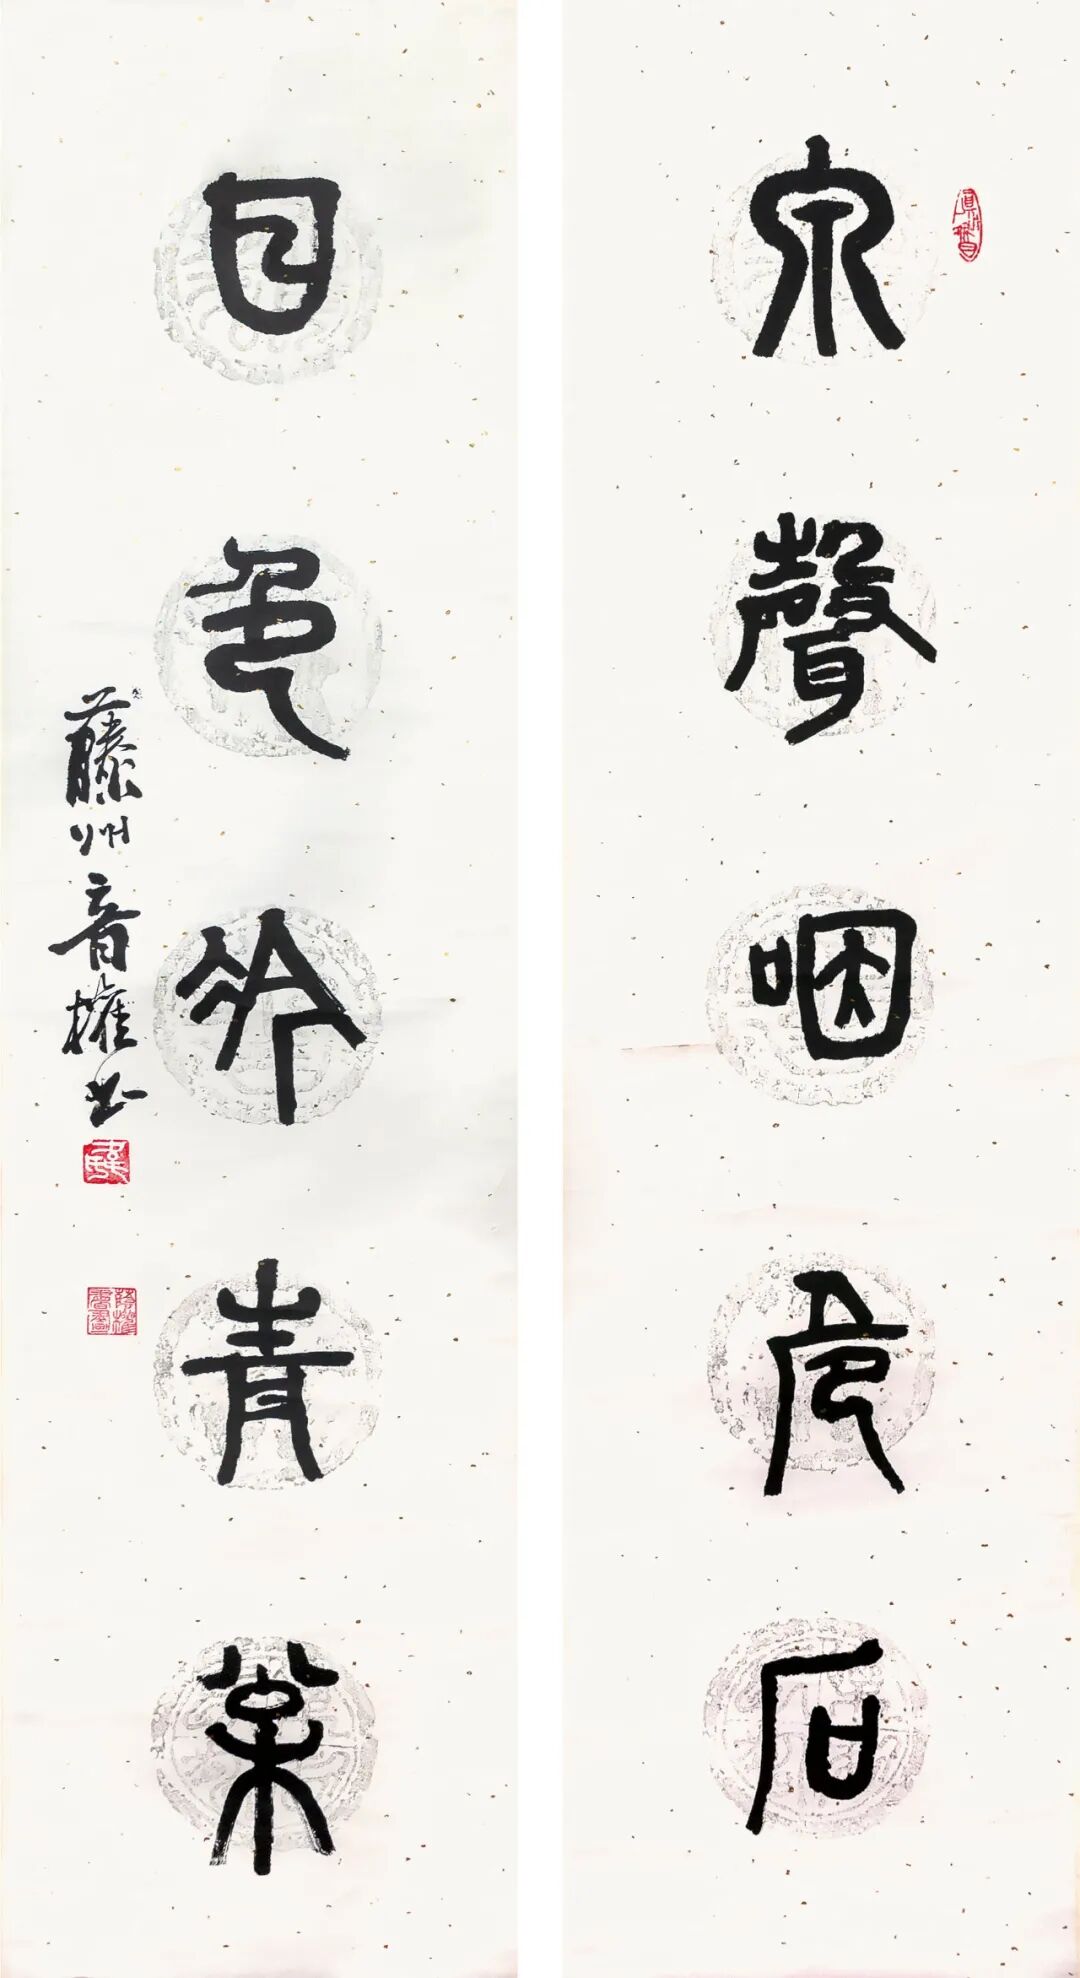 泉聲咽危石
日色冷青松
藤州音權書